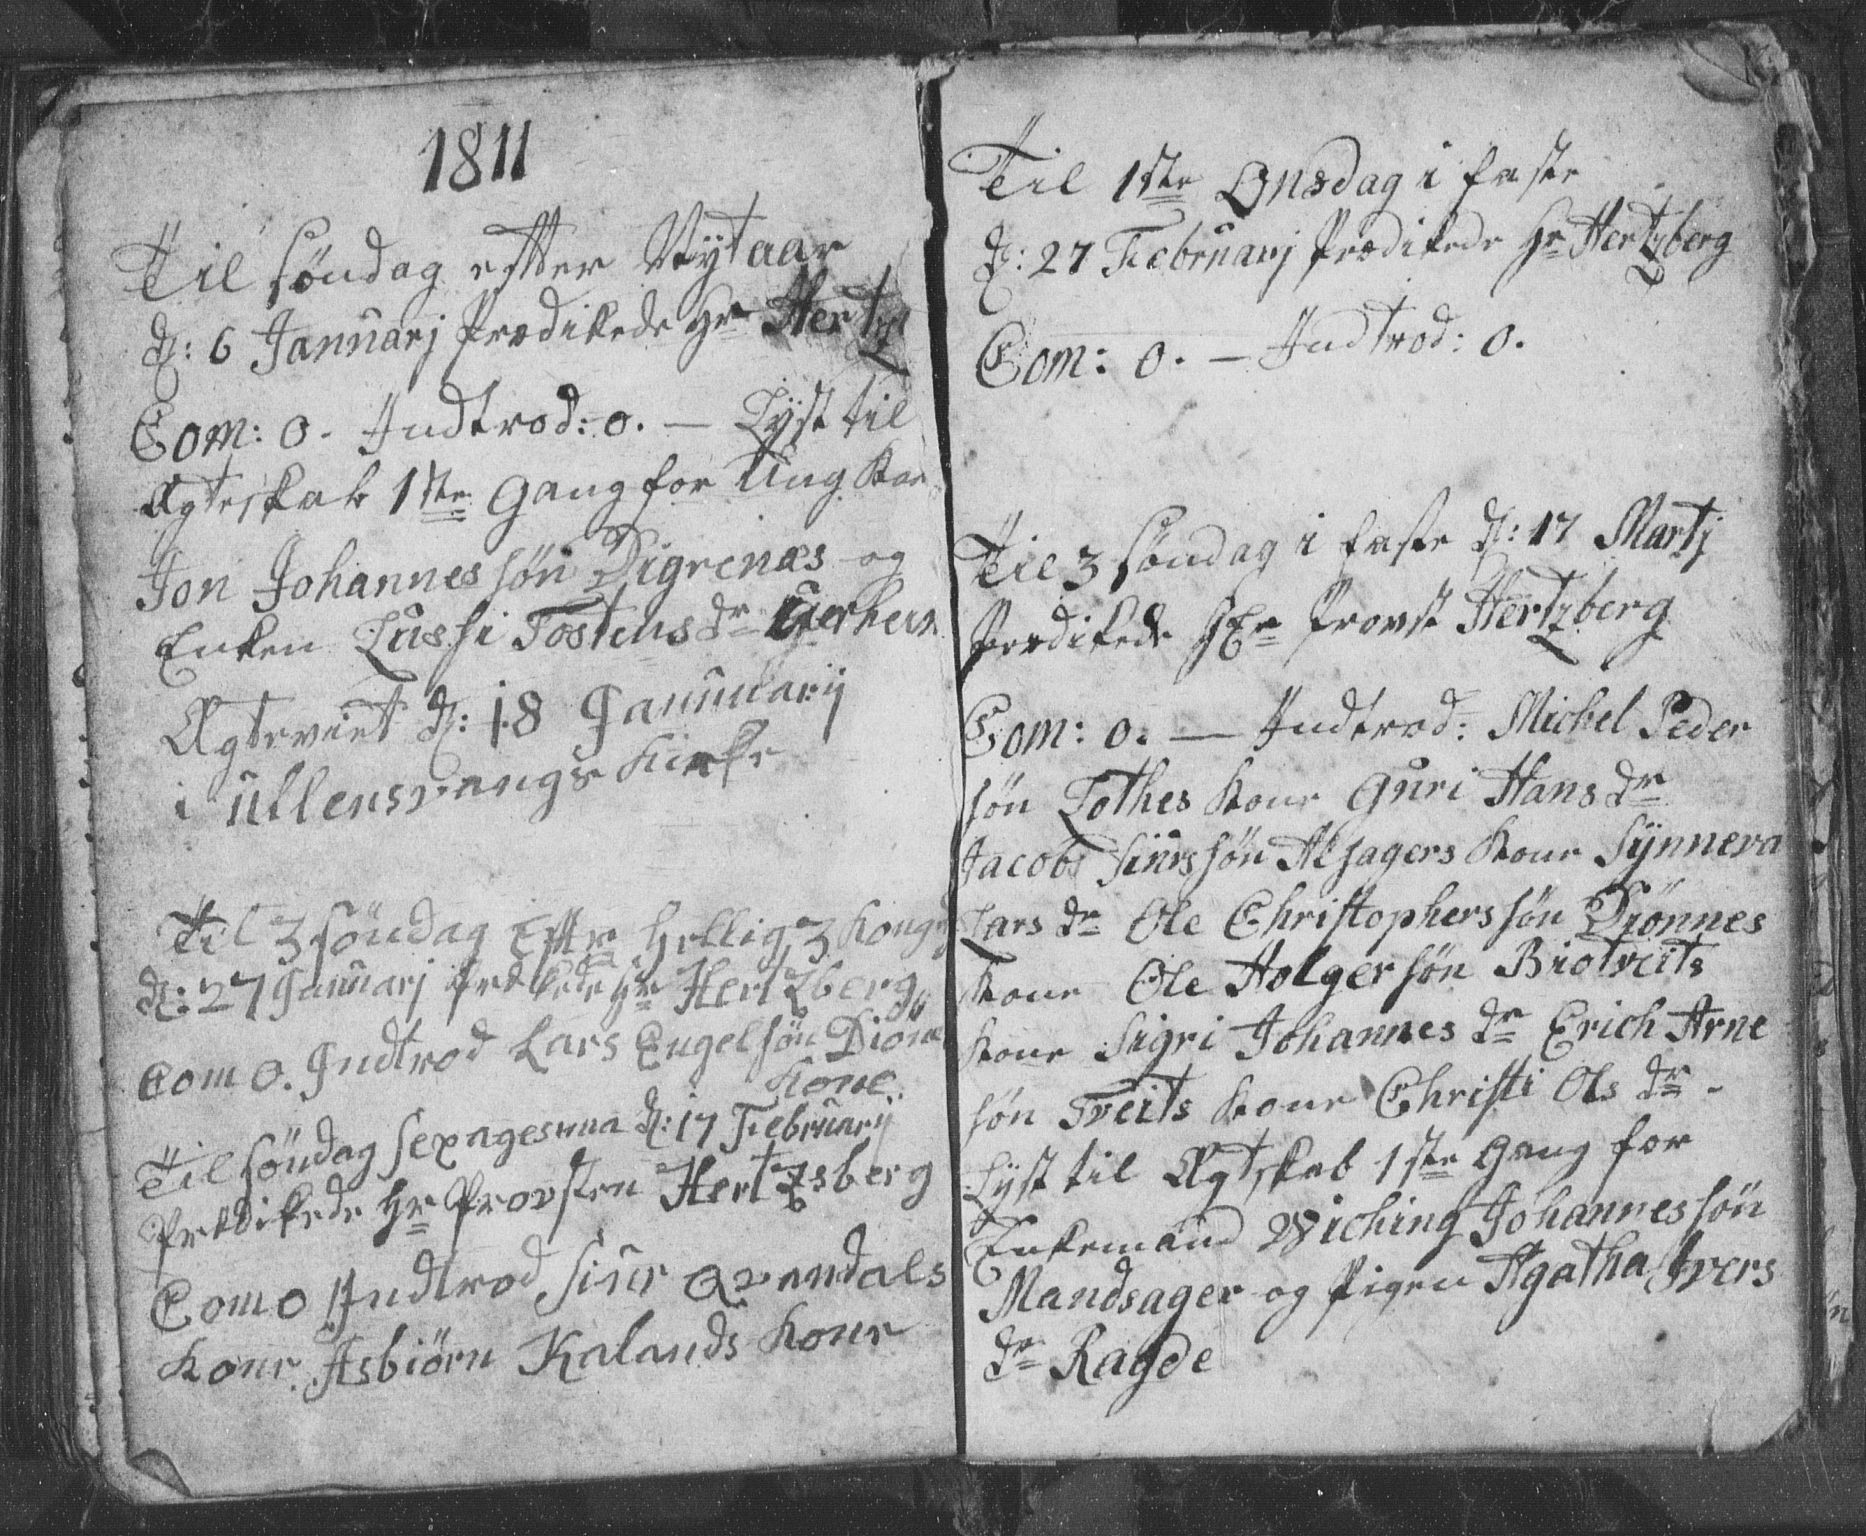 1811
Til Søndag efter Nytaar
d: 6 Januarj Prædikede Hr Hertz
Com: 0. Indtrod: 0. — Lyst til
Ægteskab 1ste Gang for Ung Kar
Jon Johannessøn Digrenæs og
Enken Lussi Tostensdr
Ægteviet d: 18 Januuarij
i Ullensvangs Kirke
Til 3 Søndag Efter Hellig 3 Konger
d: 27 Januarj Prædikede Hr Hertzberg
Com 0. Indtrod Lars Engelsøn Diøne
Kone.
Til Søndag Sexagesima d: 17 Februarij
Prædikede Hr Provsten Hertzsberg
Com 0 Indtrod Siur Qvandals
Kone. Asbiørn Kalands Kone
Til 1ste Onsdag i faste
d: 27 Februarj Prædikede Hr Hertzberg
Com: 0. — Indtrod: 0.
Til 3 Søndag i faste d: 17 Martj
Prædikede Hr Provst Hertzberg
Com: 0. — Indtrod: Michel Peder
søn Lothes Kone Guri Hans dr
Jacob Siurssøn Alsagers Kone Synneva
Lars dr Ole Christopherssøn Diønnes
Kone Ole Holgersøn Biotveits
Kone Sigri Johannes dr Erich Arne
søn Tveits Kone Christi Ols dr -
Lyst til Ægtskab 1ste Gang for
Enkemand Wiching Johannessøn
Mandsager og Pigen Agatha Ivers
dr Ragde